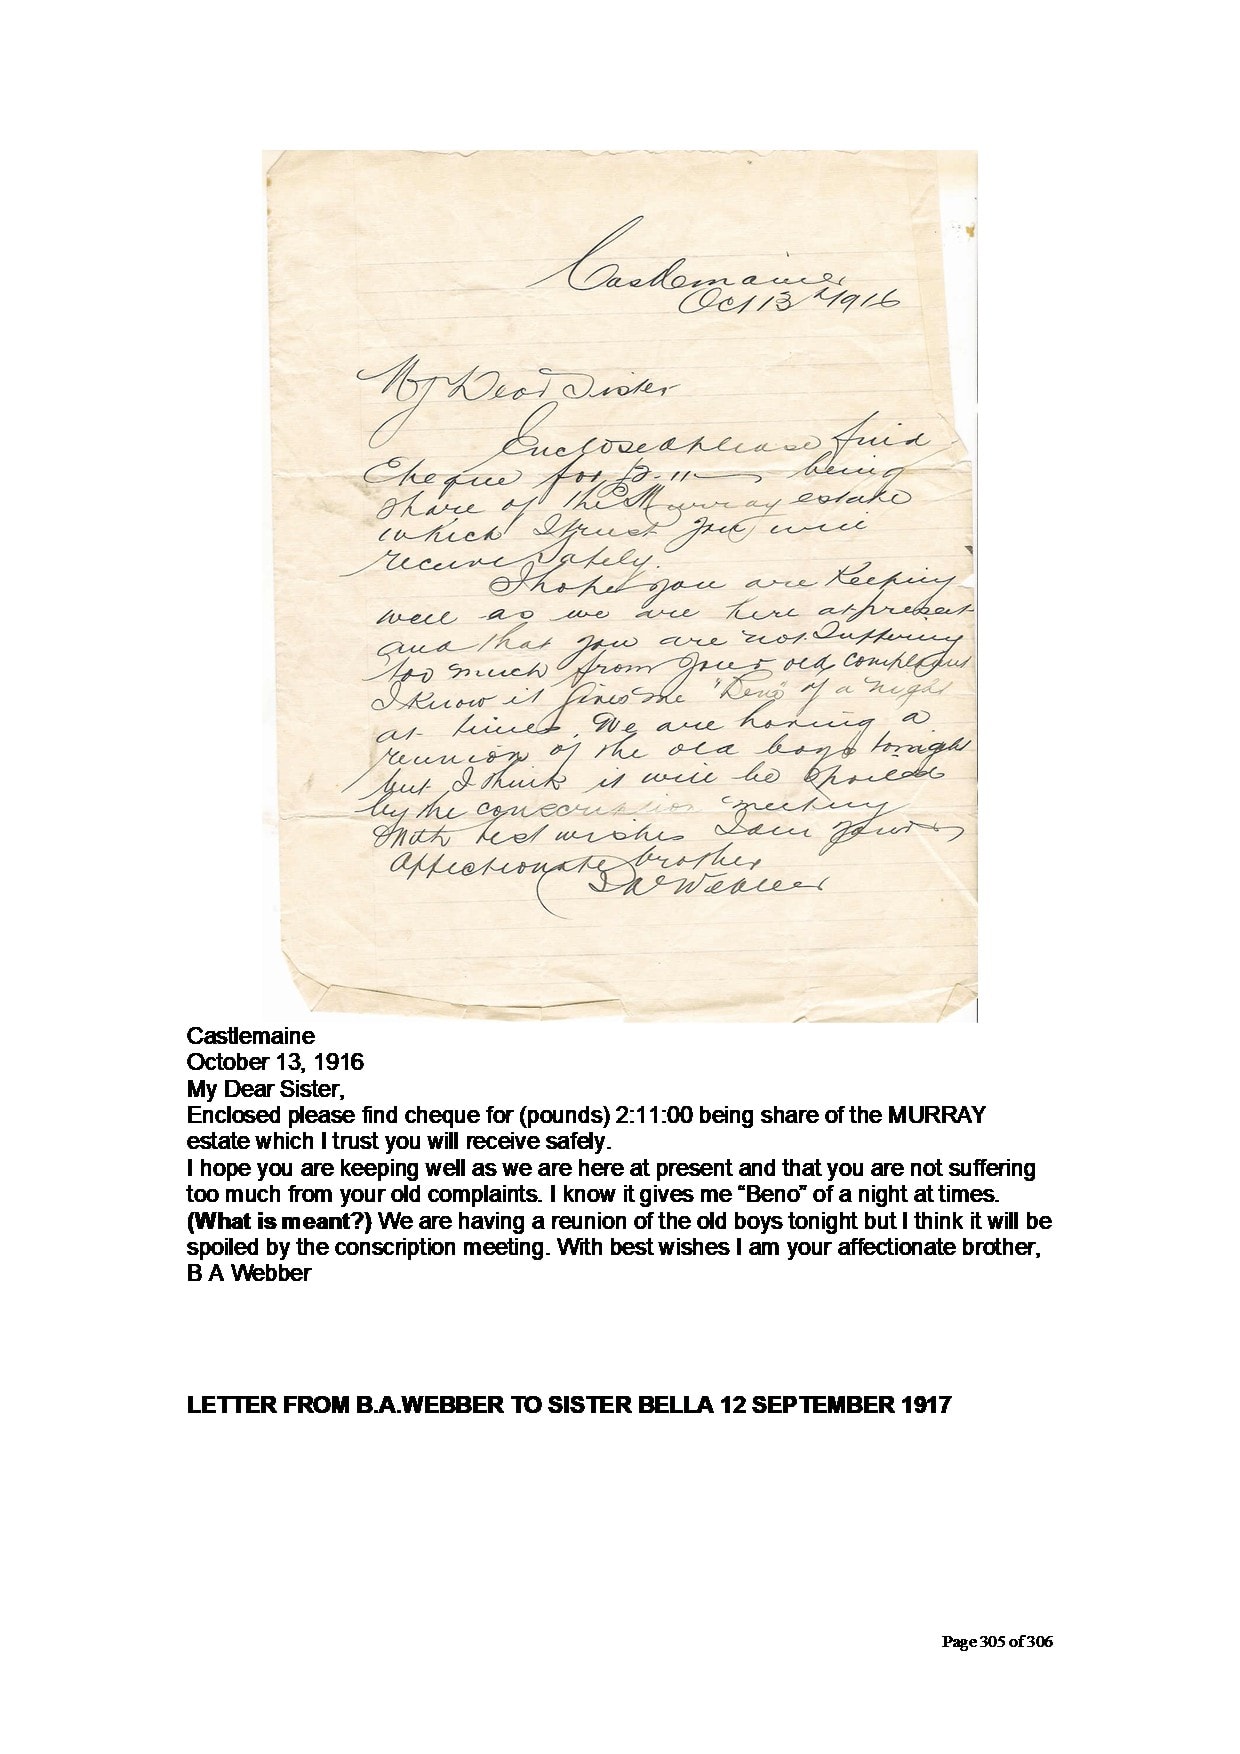 Castlemaine
Oct 13th 1916
My Dear Sister
Enclosed please find
Cheque for £2-11- being
share of the Murray estate
which I trust you will
receive safely.
I hope you are keeping
well as we are here at present
and that you are not suffering
too much from your old complaints
I know it gives me "Beno" of a night
at times. We are having a
reunion of the old boys tonight
but I think it will be spoiled
by the conscription meeting
With best wishes I am your
affectionate brother
B A Webber
Castlemaine
October 13, 1916
My Dear Sister,
Enclosed please find cheque for (pounds) 2:11:00 being share of the MURRAY
estate which I trust you will receive safely.
I hope you are keeping well as we are here at present and that you are not suffering
too much from your old complaints. I know it gives me “Beno” of a night at times.
(What is meant?) We are having a reunion of the old boys tonight but I think it will be
spoiled by the conscription meeting. With best wishes I am your affectionate brother,
B A Webber
LETTER FROM B.A.WEBBER TO SISTER BELLA 12 SEPTEMBER 1917
Page 305 of 306